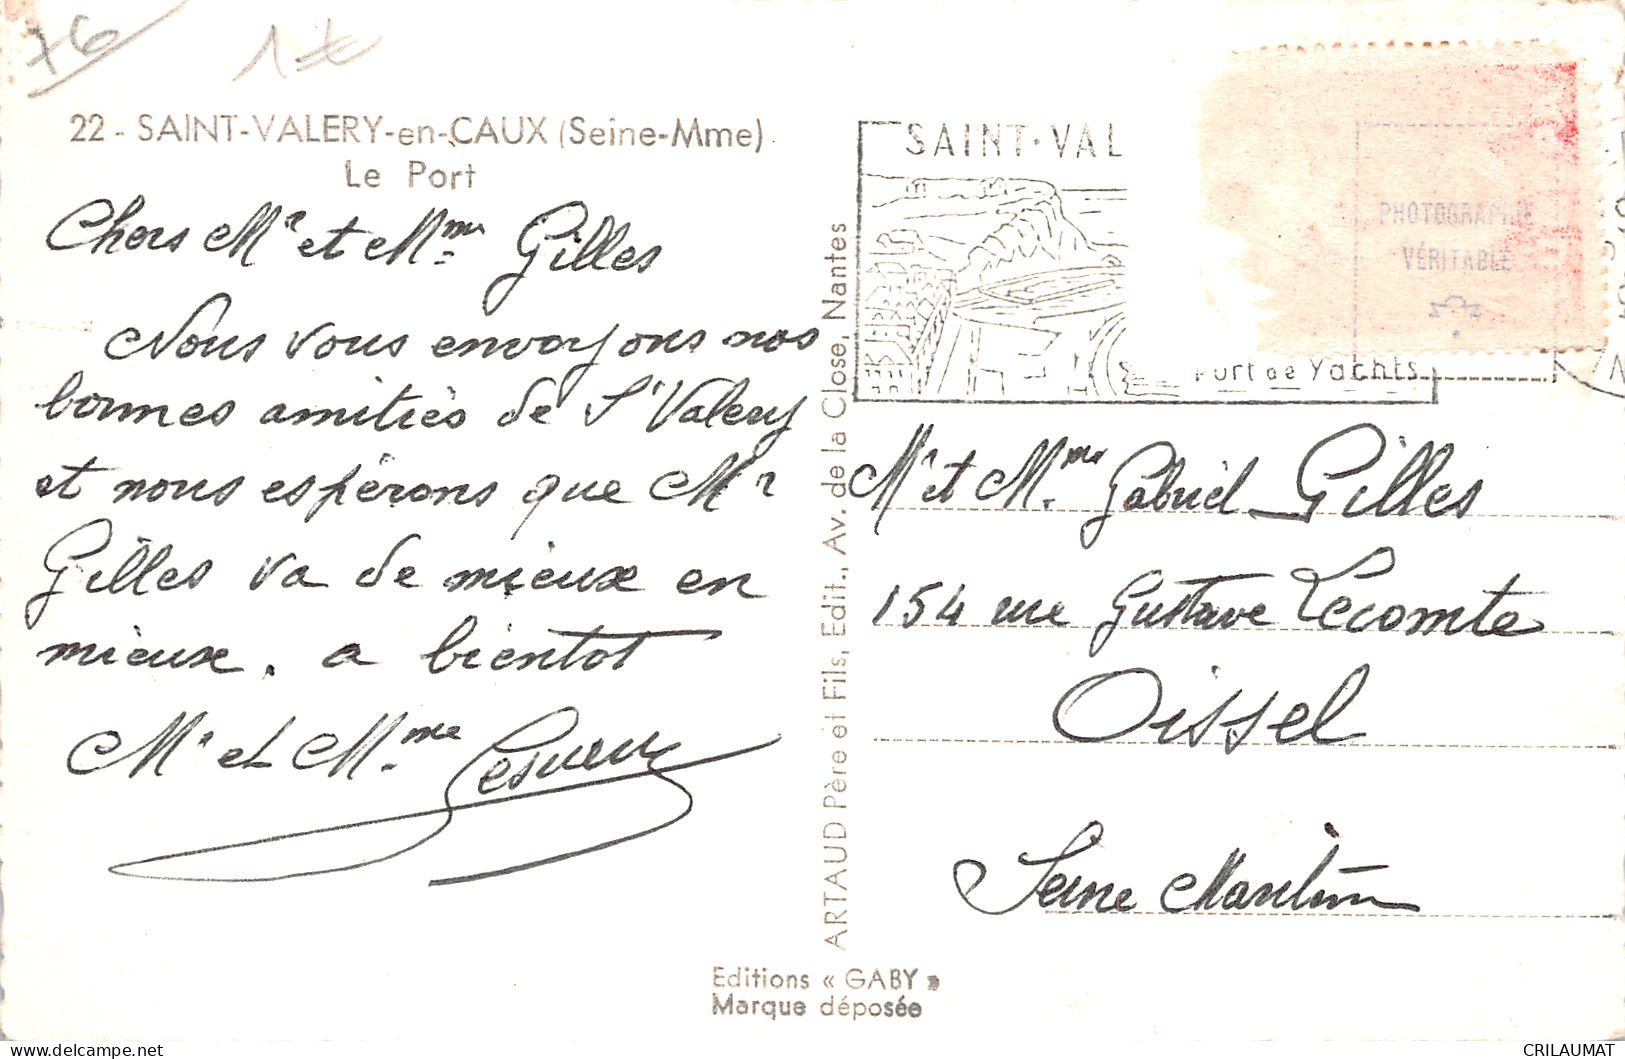 76
1€
22 - SAINT-VALERY-en-CAUX (Seine-Mme)
Le Port
Chers Mr et Mme Gilles
Nous vous envoyons nos
bonnes amitiés de St Valery
et nous espérons que Mr
Gilles va de mieux en
mieux. a bientot
Mr et Mme Lesueur
ARTAUD Père et Fils, Edit., Av. de la Close, Nantes
Editions « GABY »
Marque déposée
SAINT-VAL
Port de Yachts
PHOTOGRAPHIE
VÉRITABLE
Mr et Mme Gabriel Gilles
154 rue Gustave Lecomte
Oissel
Seine Maritime
CRILAUMAT